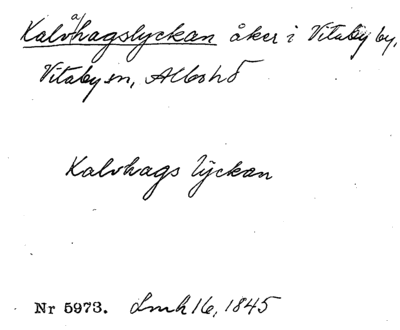 Kalvåhagslyckan åker i Vitaby by,
Vitaby sn, Albo hd
Kalvhags lÿckan
Nr 5973. Lmh 16, 1845